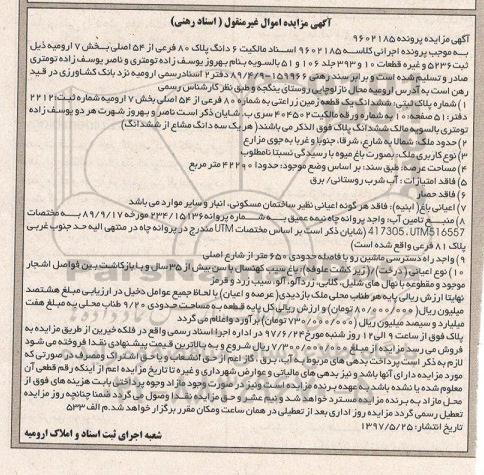 آگهی مزایده اموال غیرمنقول ( اسناد رهنی)
آگهی مزایده پرونده ۹۶۰۲۱۸۵
به موجب پرونده اجرائی کلاسه ۹۶۰۲۱۸۵ اسناد مالکیت ۶ دانگ پلاک ۸۰ فرعی از ۵۴ اصلی بخش ۷ ارومیه ذیل
ثبت ۵۲۳۶ و غیره قطعات ۱۰ و ۳۹۳ جلد ۱۰۶ و ۵۱ بالسویه بنام بهروز یوسف زاده توم‌تری و ناصر یوسف زاده توم‌تری
صادر و تسلیم شده است و برابر سند رهنی ۱۵۱۹۶۶-۸۹/۴/۹ دفتر ۲ اسناد رسمی ارومیه نزد بانک کشاورزی در قید
رهن است به آدرس ارومیه محال نازلوچای روستای ینگجه و طبق نظر کارشناس رسمی
۱) شماره پلاک ثبتی: ششدانگ یک قطعه زمین زراعتی به شماره ۸۰ فرعی از ۵۴ اصلی بخش ۷ ارومیه شماره ثبت: ۲۲۱۲
دفتر: ۵۱ صفحه: ۱۰ به شماره ورقه مالکیت ۴۰۴۵۰۲ سری ب. شایان ذکر است ناصر و بهروز شهرت هر دو یوسف زاده
توم‌تری بالسویه مالک ششدانگ پلاک فوق الذکر می باشند( هر یک سه دانگ مشاع از ششدانگ)
۲) حدود ملک: شمالا به شارع، شرقا، جنوبا و غربا به جوی مزارع
۳) نوع کاربری ملک: بصورت باغ میوه با رسیدگی نسبتا نامطلوب
۴) مساحت عرصه: طبق سند: بر اساس وضع موجود: حدودا ۴۲۲۰۰ متر مربع
۵) فاقد امتیازات : آب شرب روستائی/ برق
۶) فاقد حصار
۷) اعیانی باغ( ابنیه): فاقد هر گونه اعیانی نظیر ساختمان مسکونی، انبار و سایر موارد می باشد
۸) منبع تامین آب: واجد پروانه چاه نیمه عمیق به شماره پروانه ۲۳۴/۱۵۱۳۶ مورخه ۸۹/۹/۱۷ به مختصات
417305 ،UTM516557 (شایان ذکر است بر اساس مختصات UTM مندرج در پروانه چاه در منتهی الیه حد جنوب غربی
پلاک ۸۱ فرعی واقع شده است)
۹) واجد راه دسترسی ماشین رو با فاصله حدودی ۶۵۰ متر از شارع اصلی
۱۰) نوع اعیانی( درخت) / (زیر کشت علوفه): باغ سیب کهنسال با سن بیش از ۳۵ سال و پا بازکاشت بین فواصل اشجار
موجود و مقطوعه با نهال های شلیل، گلابی، زردآلو، آلو، سیب زرد و قرمز
نهایتا ارزش ریالی پایه هر طناب محلی ملک بازدیدی( عرصه و اعیان) با لحاظ جمیع عوامل دخیل در ارزیابی مبلغ هشتصد
میلیون ریال (۸۰/۰۰۰/۰۰۰ تومان) و ارزش ریالی کل پایه قطعه به مساحت حدودی ۹/۲۰ طناب محلی به مبلغ هفت
میلیارد و سیصد میلیون ریال (۷۳۰/۰۰۰/۰۰۰ تومان) برآورد و اعلام می گردد
پلاک فوق از ساعت ۹ الی ۱۲ روز شنبه مورخ ۹۷/۶/۲۴ در اداره اجرا اسناد رسمی واقع در فلکه خیرین از طریق مزایده به
فروش می رسد مزایده از مبلغ ۷/۳۰۰/۰۰۰/۰۰۰ ریال شروع و به بالاترین قیمت پیشنهادی نقدا فروخته می شود
لازم به ذکر است پرداخت بدهی های مربوط به آب، برق، گاز اعم از حق انشعاب و یا حق اشتراک و مصرف در صورتی که
مورد مزایده دارای آنها باشد و نیز بدهی های مالیاتی و عوارض شهرداری و غیره تا تاریخ مزایده اعم از اینکه رقم قطعی آن
معلوم شده یا نشده باشد به عهده برنده مزایده است ونیز در صورت وجود مازاد وجوه پرداختی بابت هزینه های فوق از
محل مازاد به برنده مزایده مسترد خواهد شد و نیم عشر و حق مزایده نقدا وصول می گردد ضمنا چنانچه روز مزایده
تعطیل رسمی گردد مزایده روز اداری بعد از تعطیلی در همان ساعت ومکان مقرر برگزار خواهد شد.م الف ۵۳۳
تاریخ انتشار: ۱۳۹۷/۵/۲۵
شعبه اجرای ثبت اسناد و املاک ارومیه